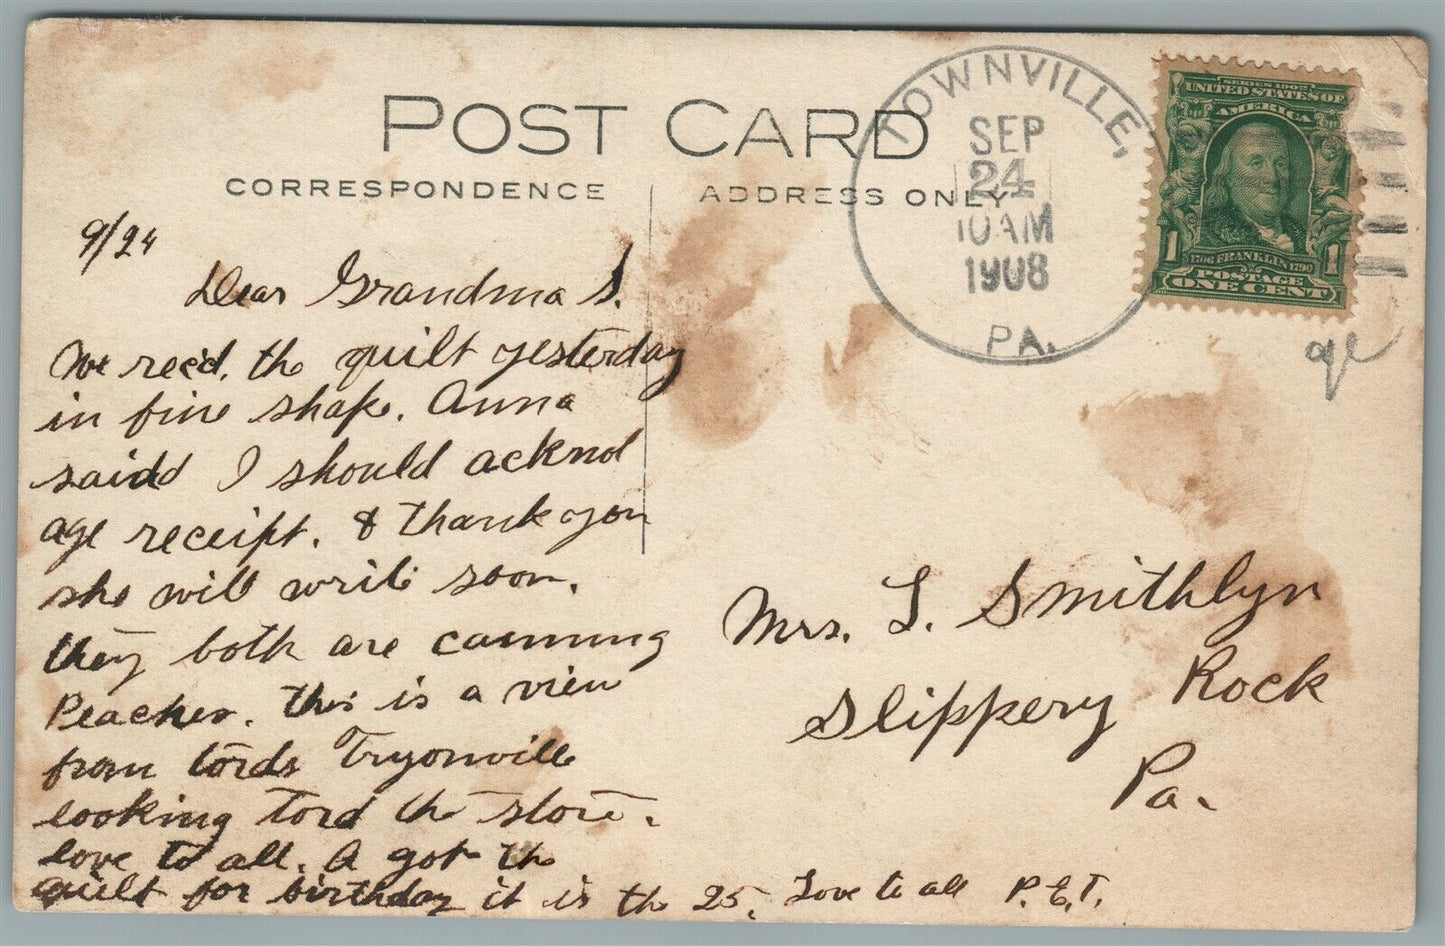 POST CARD
CORRESPONDENCE
ADDRESS ONLY
TOWNVILLE,
SEP
24
10AM
1908
PA.
SERIES 1902
UNITED STATES OF
AMERICA
1 1706 FRANKLIN 1790 1
POSTAGE
ONE CENT
9/24
Dear Grandma S.
We rec'd. the quilt yesterday
in fine shape. Anna
said I should acknol
age receipt. & thank you
she will write soon.
they both are canning
Peaches. this is a view
from tords Tryonville
looking tord the store.
love to all. A got the
quilt for birthday it is the 25. Love to all P.E.T.
Mrs. L. Smithlyn
Slippery Rock
Pa.